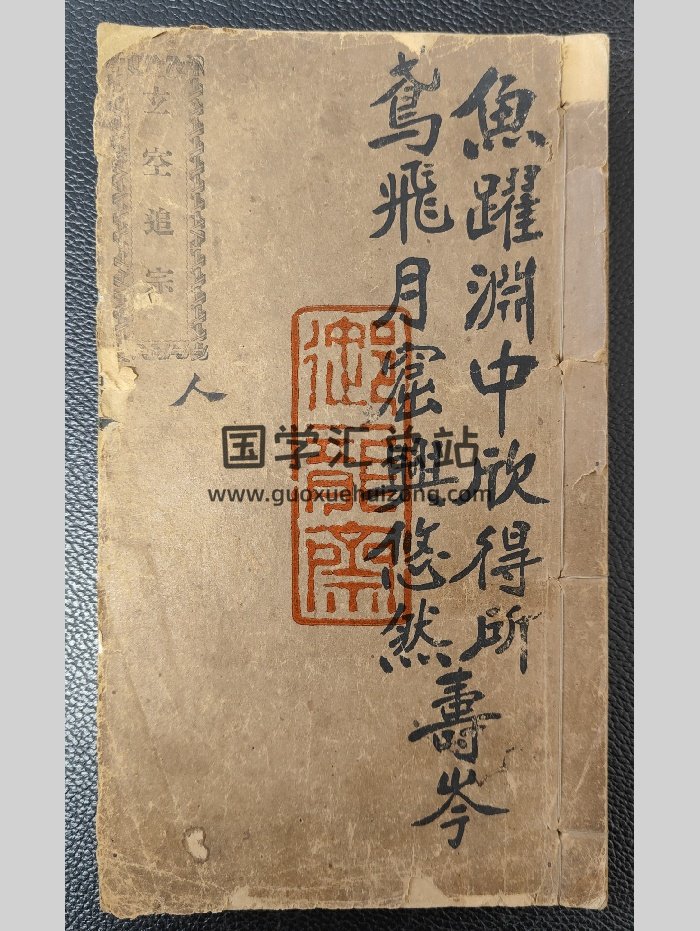 魚躍淵中欣得所
鳶飛月窟興悠然
壽岑
玄空追宗
人
国学汇总站
www.guoxuehuizong.com